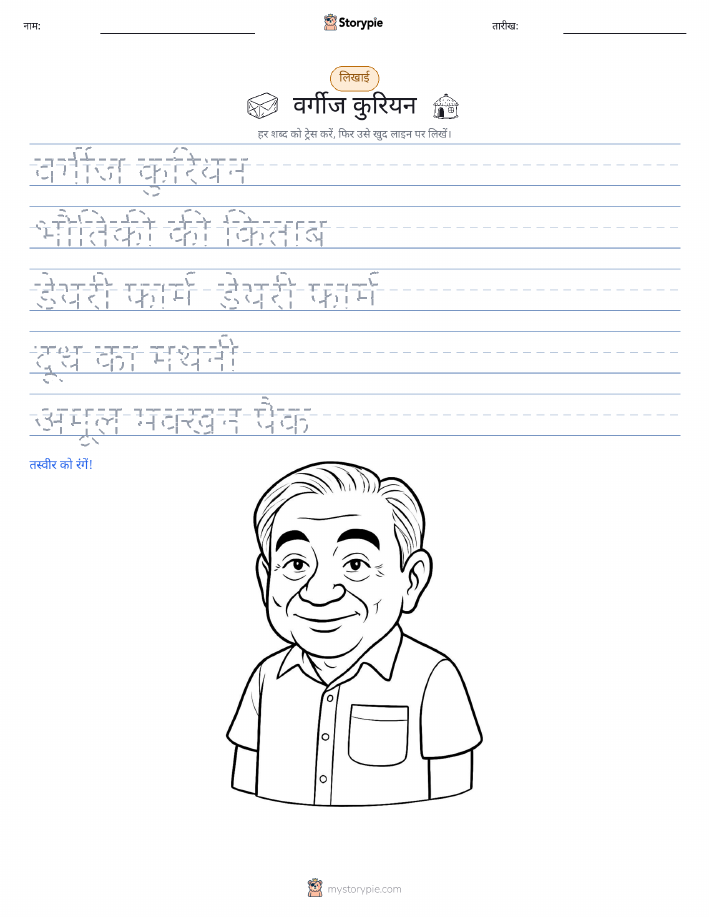 नाम:
Storypie
तारीख:
लिखाई
वर्गीज कुरियन
हर शब्द को ट्रेस करें, फिर उसे खुद लाइन पर लिखें।
वर्गीज कुरियन
भौतिकी की किताब
डेयरी फार्म डेयरी फार्म
दूध का मथनी
अमूल मक्खन पैक
तस्वीर को रंगें!
mystorypie.com